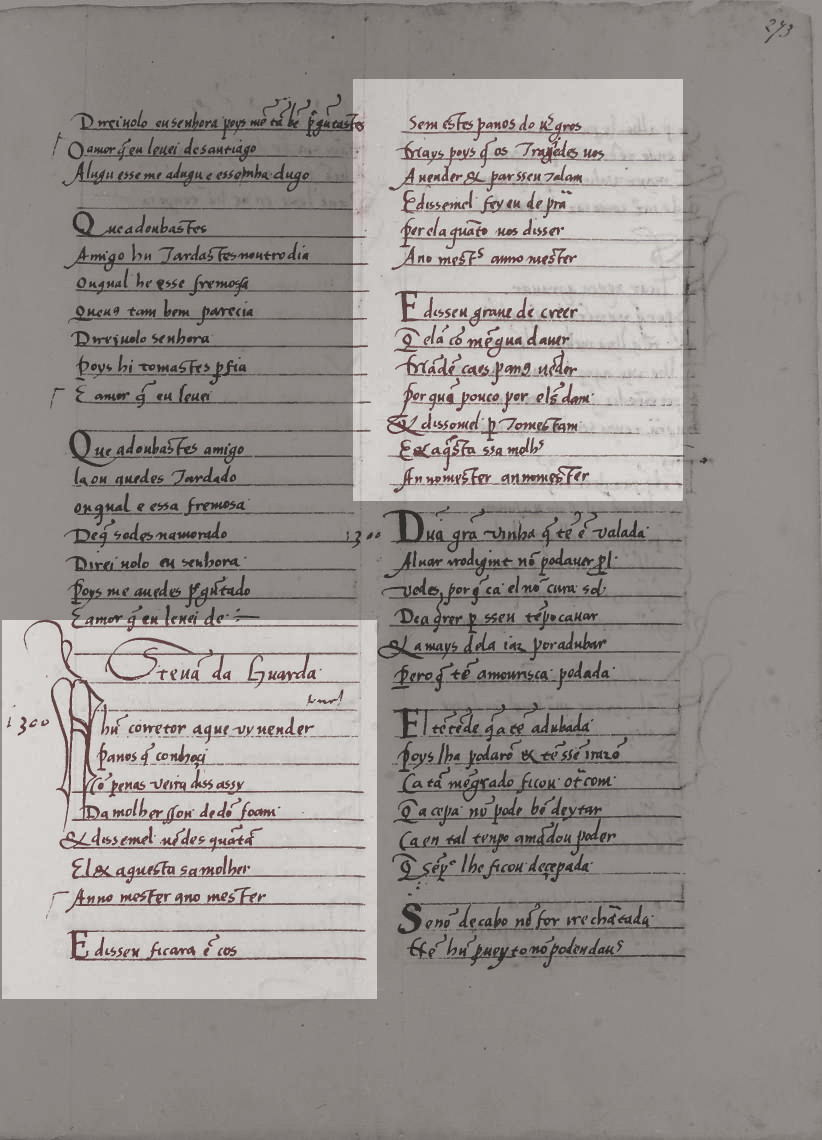 273
Direivolo eu senhora poys me tã bẽ p̃gũtastes
O amor q̃ eu levei de santiago
A lugu esse me adugu e esso mha dugo
Que adoubastes
Amigo hu Tardastes noutro dia
Ou qual he esse fremosa
Quen9 tam bem parecia
Direivolo senhora
Poys hi tomastes p̃fia
E amor q̃ eu levei
Que adoubastes amigo
la ou avedes Tardado
ou qual e essa fremosa
De q̃ sodes namorado
Direi volo eu senhora
Poys me avedes p̃gũtado
E amor q̃ eu levei de
Stevã da Guarda
1300
A hũ corretor a que vy vender
Panos q̃ conhoçi
Cõ penas veira diss assy
Da molher ssou de dõ foam
& dissemel vẽdes quãta
El & aquesta sa molher
Anno mester ano mester
E disseu ficara ẽ cos
Sem estes panos do
trlays poys q̃ os Tragedes vos
A vender & par sseu Talam
E dissemel fey eu de prã
per ela quãto vos disser
Ano mest anno mester
E disseu grave de creer
Q̃ ela cõ mẽgua d aver
caes pan9 vẽder
Por quã pouco por els dam
& dissomel p Tomestam
El & aq̃sta ssa molh
An no mester an no mester
1300
Dũa grã vinha q̃ tẽ ẽ valada
Alvar rrodigiu nõ pod aver
vedes por q̃ ca el nõ cura sol
De a q̃rer p sseu tẽpo cavar
& a mays dela iaz por adubar
Pero q̃ tẽ a mourisca podada
El tẽ q̃ a tẽ adubada
Poys lha podarõ & tẽ ssẽ irazõ
Ca tã mẽgoado ficou
Q̃ a cepa nõ pode bẽ deytar
Ca en tal tenpo a mãdou poder
Q̃ sẽpe lhe ficou decepada
Se nõ de cabo nõ for
hũ p̃ueyto nõ pod en